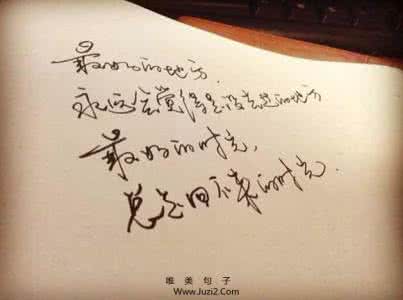 最好的地方，
永远会觉得是没去过的地方
最好的时光，
总是回不来的时光.
唯美句子
Www.Juzi2.Com